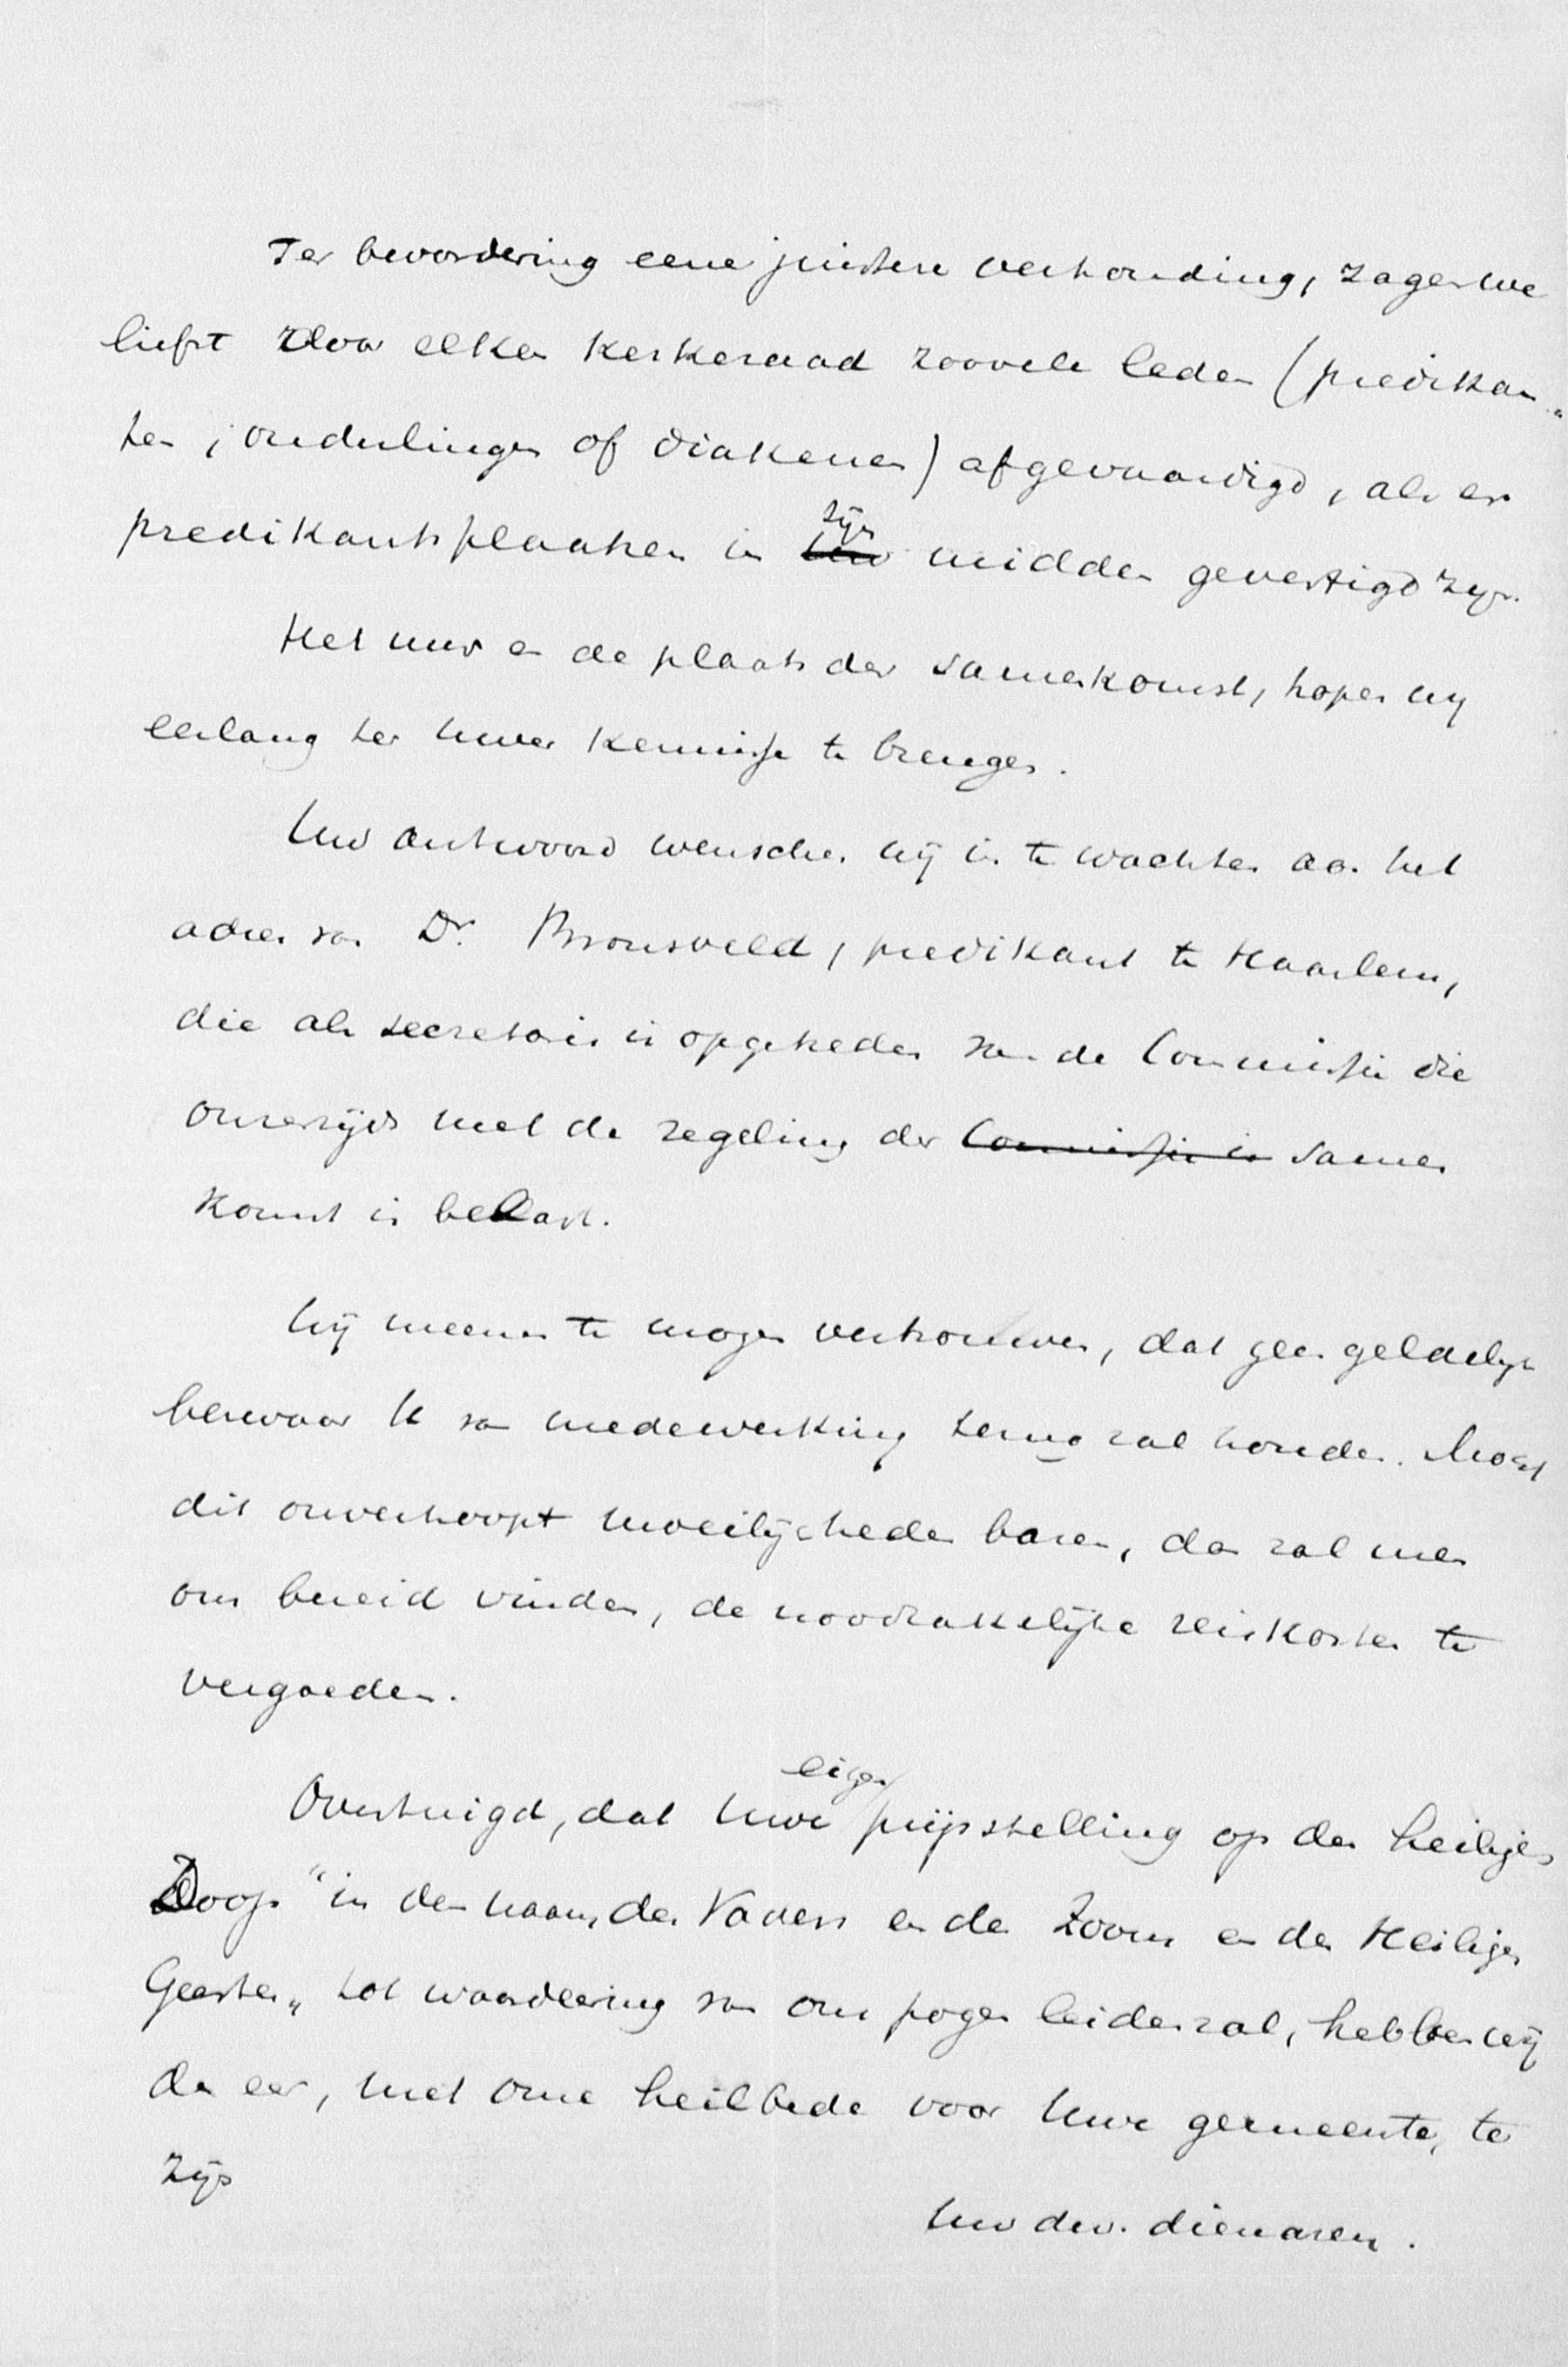 Ter bevordering eene juistere verhouding, zagen we
liefst door elken kerkeraad zoovele leden (predikan-
ten, ouderlingen of diakenen) afgevaardigd, als er
predikantsplaatsen in zijn midden gevestigd zijn.
Het uur en de plaats der samenkomst, hopen wij
eerlang ter Uwer kennisse te brengen.
Uw antwoord wenschen wij in te wachten aan het
adres van Dr. Bronsveld, predikant te Haarlem,
die als secretaris is opgetreden van de Commissie die
onzerzijds met de regeling der Commissie is samen
komst is belast.
Wij meenen te mogen vertrouwen, dat geen geldelijk
bezwaar U van medewerking terug zal houden. Mocht
dit onverhoopt moeilijkheden baren, dan zal men
ons bereid vinden, de noodzakelijke reiskosten te
vergoeden.
Overtuigd, dat Uwe eigen prijsstelling op den heiligen
Doop "in den naam des Vaders en des Zoons en des Heiligen
Geestes" tot waardeering van ons pogen leiden zal, hebben wij
de eer, met onze heilbede voor Uwe gemeente, te
zijn
Uw dw. dienaren.